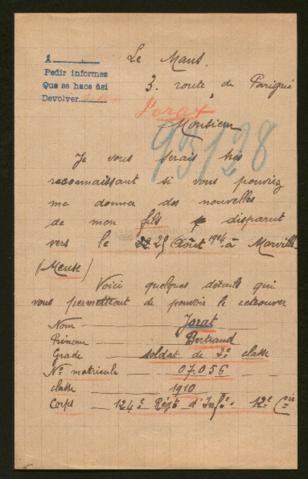 A
Pedir informes
Que se hace ási
Devolver
Le Mans
3. route de Parigné
Jorat
Monsieur
93128
Je vous serais très
reconnaissant si vous pouviez
me donner des nouvelles
de mon fils disparut
vers le 25 Août 1914 à Morville
(Meuse)
Voici quelques détails qui
vous permettront de pouvoir le retrouver
Nom Jorat
Prénom Bertrand
Grade soldat de 2e classe
No matricule 07.056
classe 1910
Corps 124e Régt d'Infie. 12e Cie